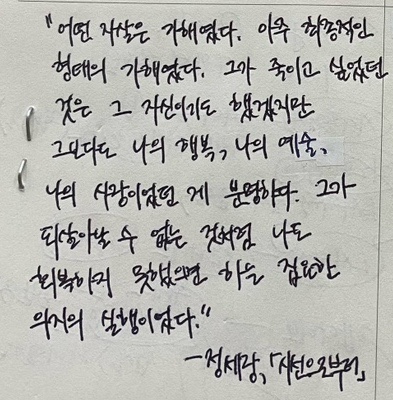 "어떤 자살은 가해였다. 아주 최종적인
형태의 가해였다. 그가 죽이고 싶었던
것은 그 자신이기도 했겠지만
그보다도 나의 행복, 나의 예술,
나의 사랑이었던 게 분명하다. 그가
되살아날 수 없는 것처럼 나도
회복하지 못했으면 하는 집요한
의지의 실행이었다."
-정세랑, 「시선으로부터」